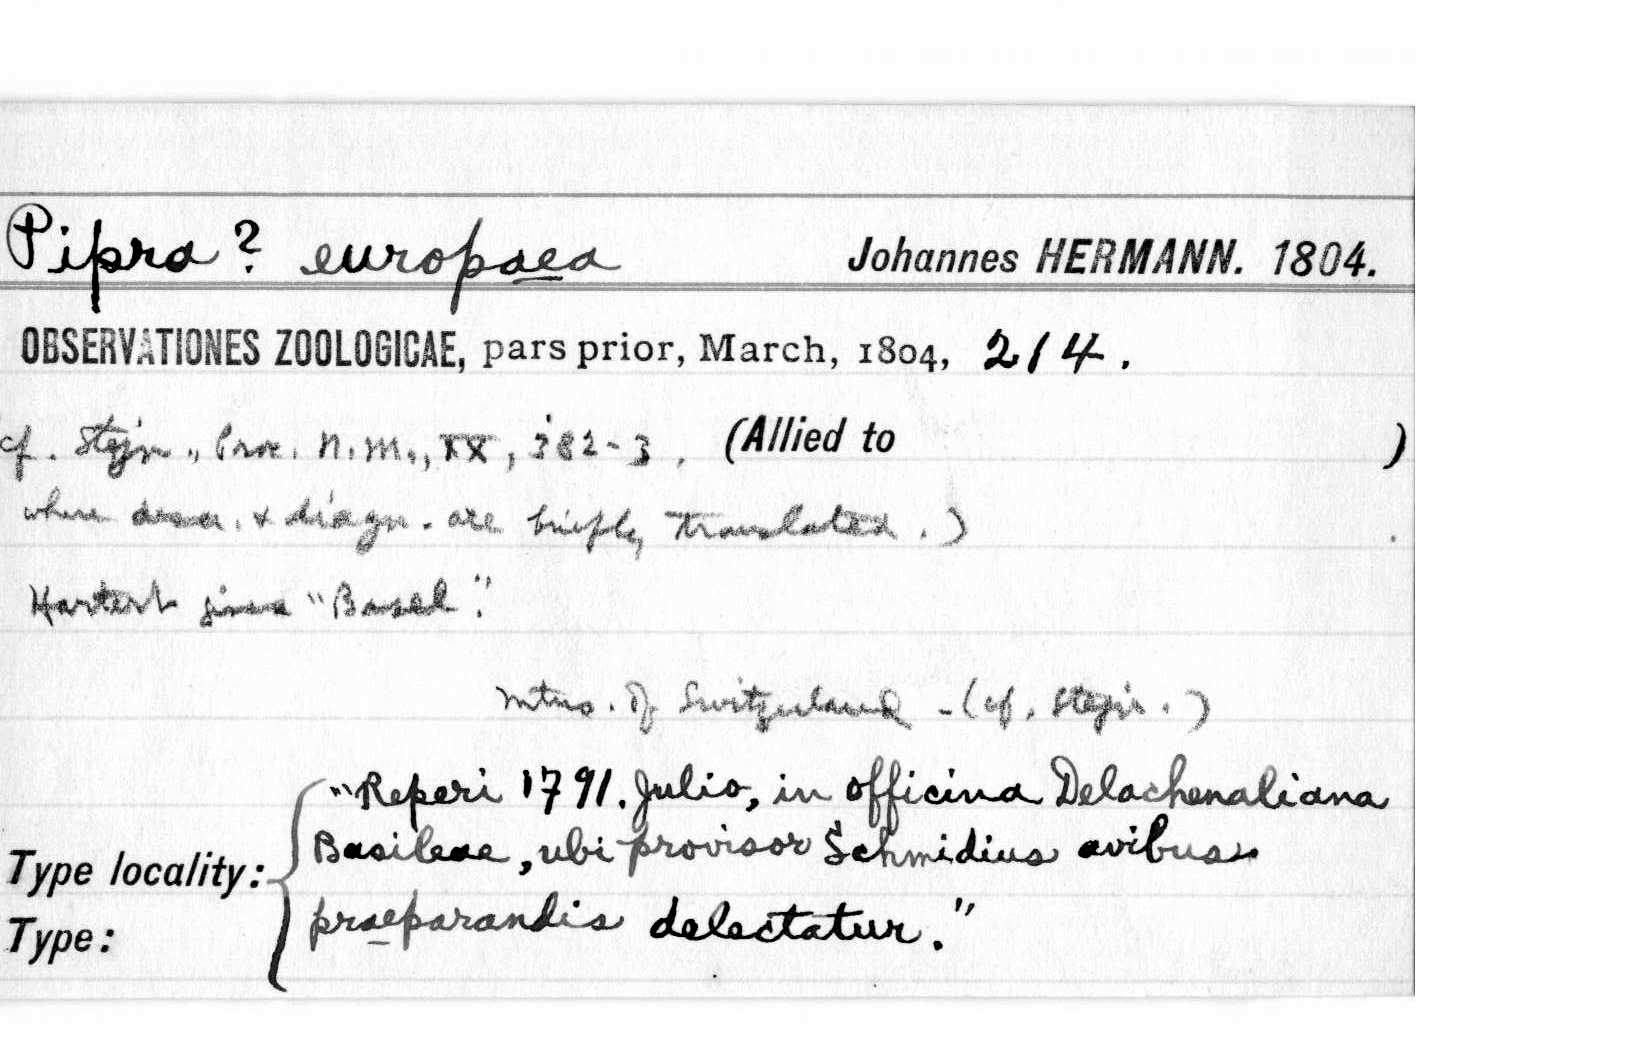 Pipra ? europaea Johannes HERMANN. 1804.
OBSERVATIONES ZOOLOGICAE, pars prior, March, 1804, 214.
cf. Stejn., Proc. N.M., XX, 382-3. (Allied to )
where descr. & diagn. are briefly translated.)
Hartert gives "Basel".
mtns. of Switzerland - (cf. Stejn.)
"Reperi 1791. Julio, in officina Delachenaliana
Basileae, ubi provisor Schmidius avibus
Type locality:
praeparandis delectatur."
Type: